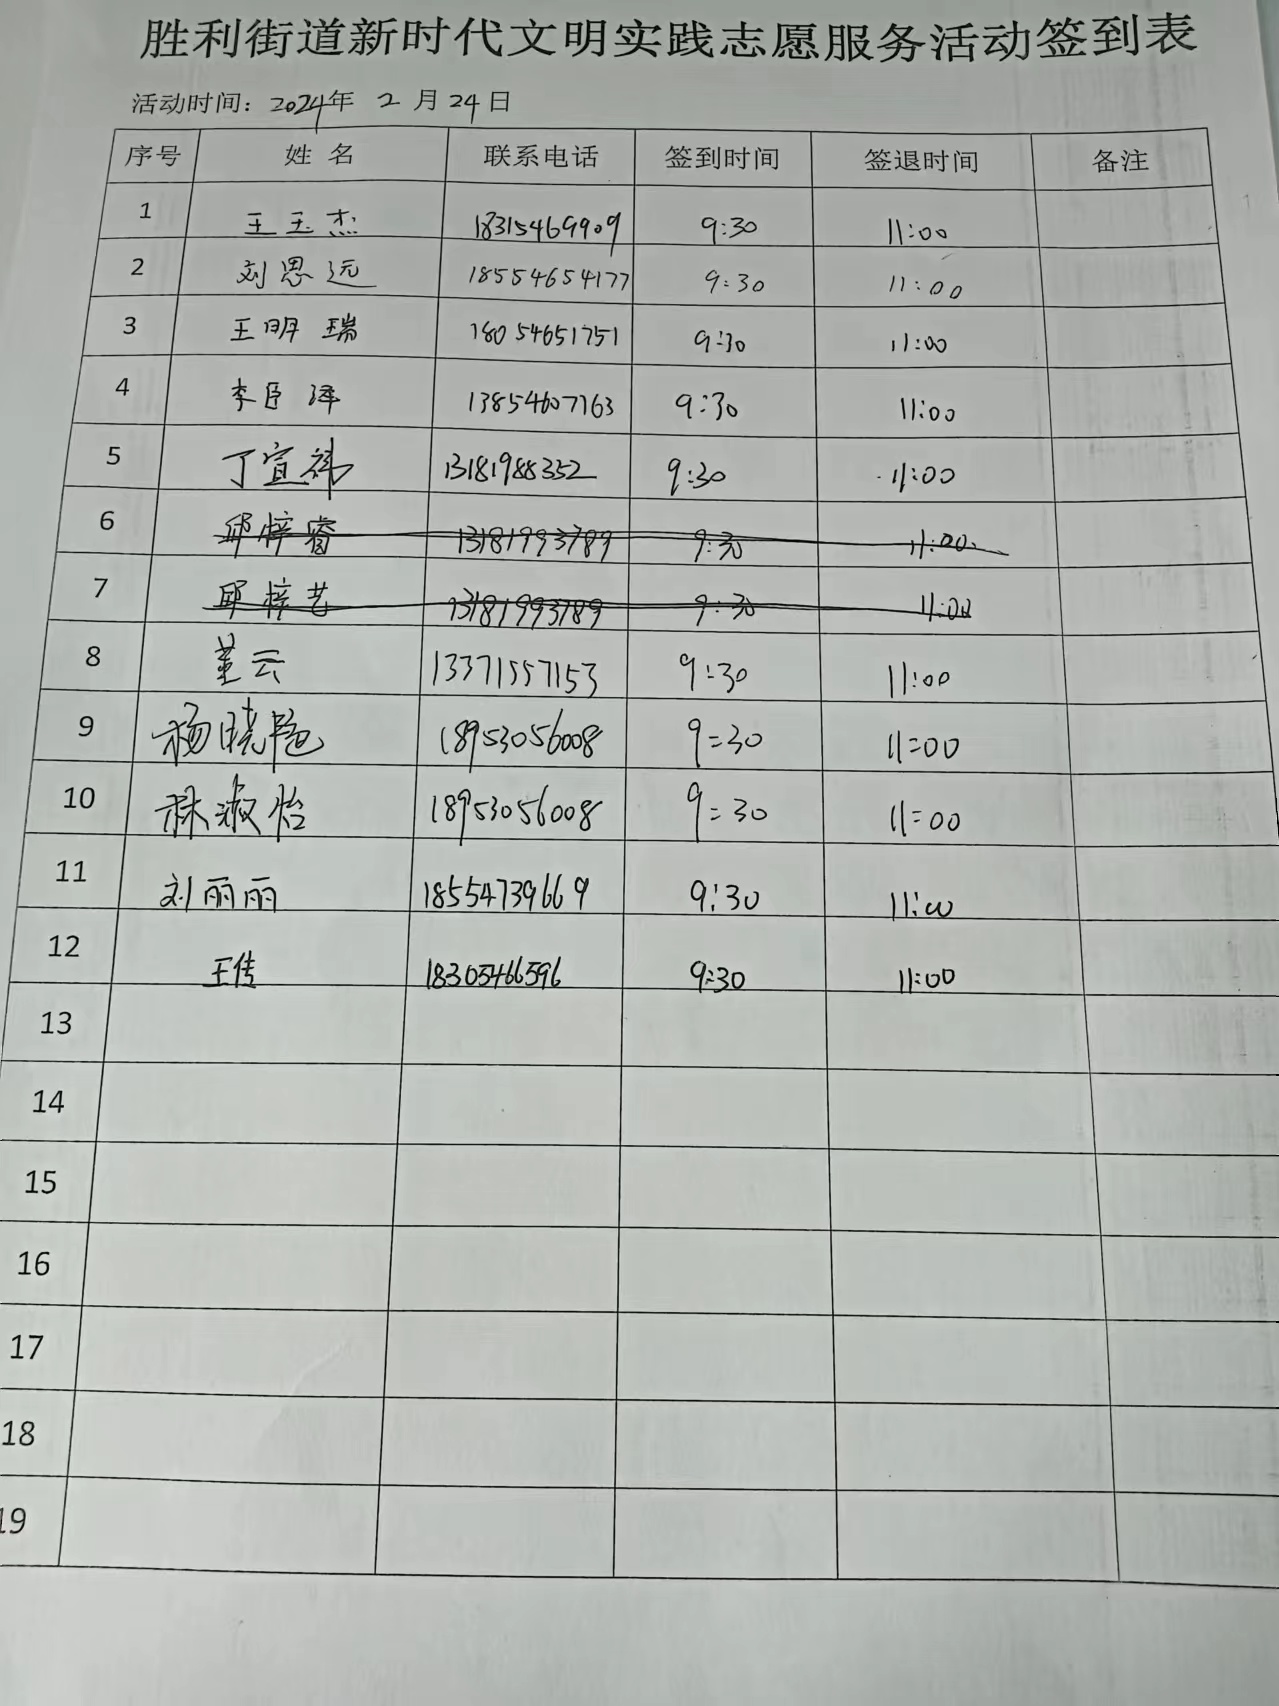 胜利街道新时代文明实践志愿服务活动签到表
活动时间：2024年 2 月 24 日
序号 姓 名 联系电话 签到时间 签退时间 备注
1 王玉杰 18315469909 9:30 11:00
2 刘思远 18554654177 9:30 11:00
3 王明瑞 18054651751 9:30 11:00
4 李臣泽 13854607163 9:30 11:00
5 丁宣祎 13181988352 9:30 11:00
6 邱梓睿 13181993789 9:30 11:00
7 邱梓艺 13181993789 9:30 11:00
8 董云 13371557153 9:30 11:00
9 杨晓艳 18953056008 9=30 11=00
10 林淑怡 18953056008 9=30 11=00
11 刘丽丽 18554739669 9:30 11:00
12 王传 18305466596 9:30 11:00
13
14
15
16
17
18
19